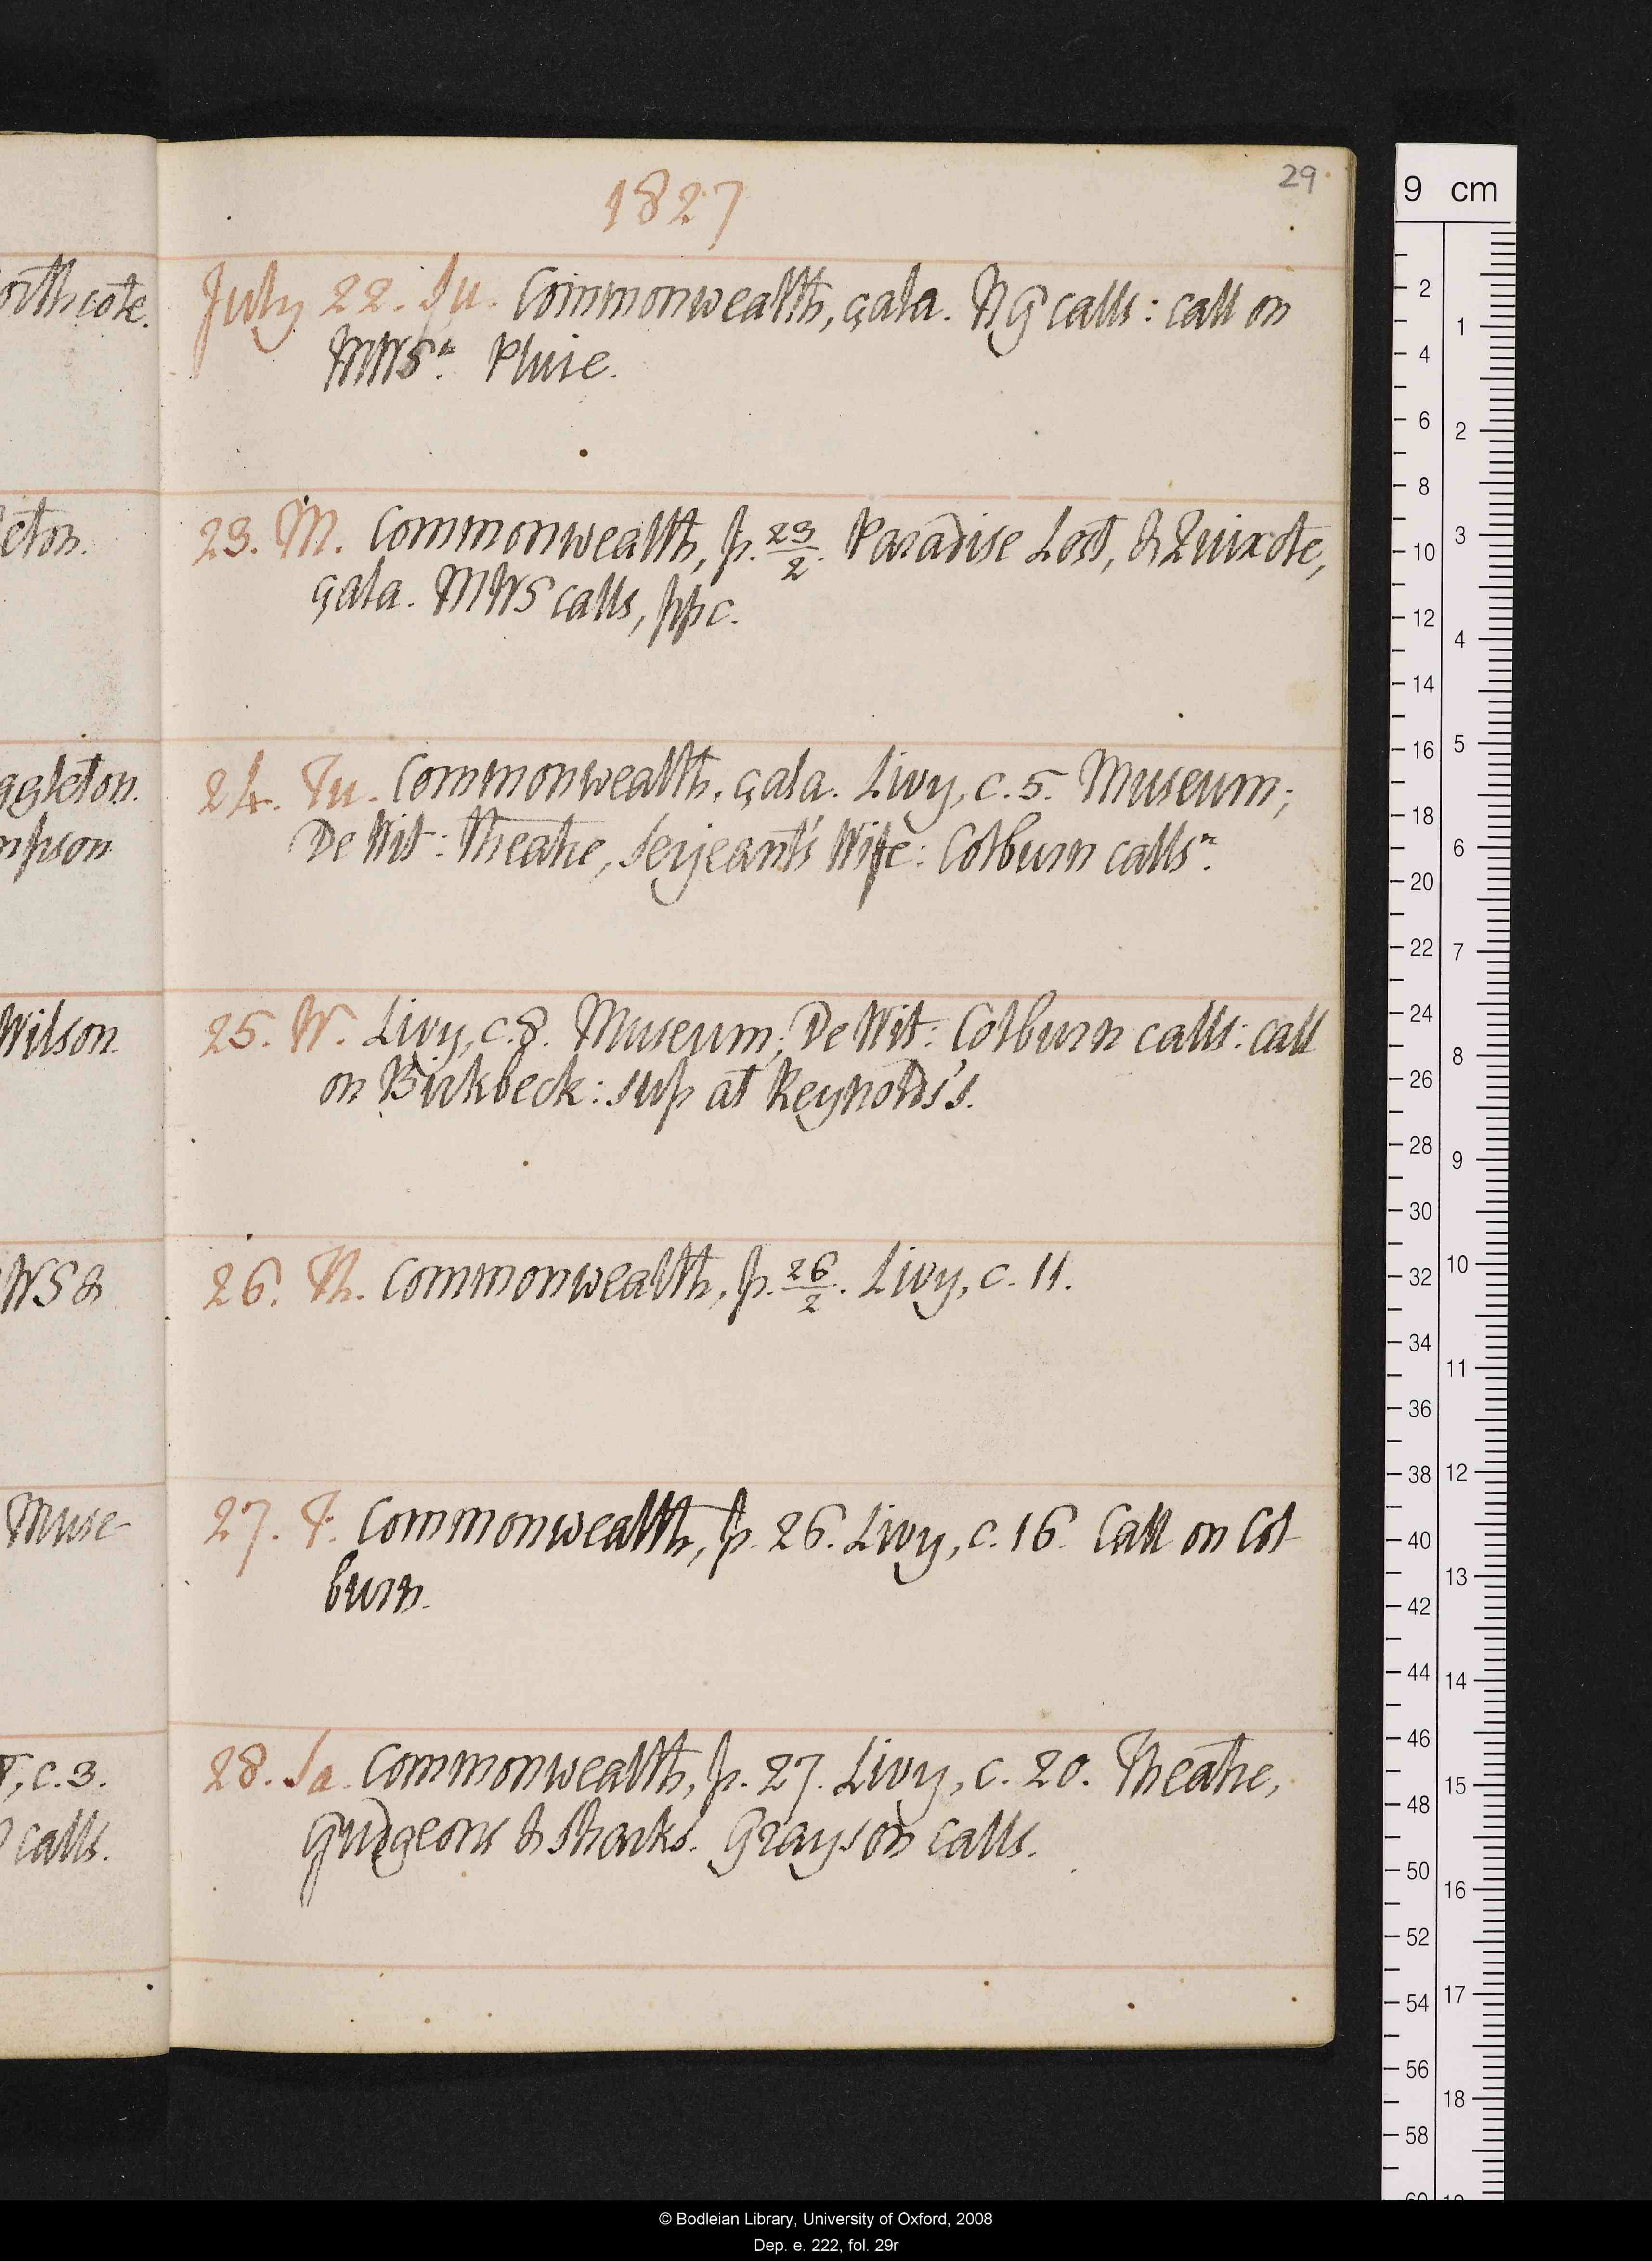 29
1827
orthcote.
July 22. Su. Commonwealth, çala. NG calls: call on
MWSⁿ. Pluie.
leton.
23. M. Commonwealth, p. 23/2. Paradise Lost, & Quixote,
çala. MWS calls, ppc.
ggleton.
mpson
24. Tu. Commonwealth, çala. Livy, c. 5. Museum;
De Wit: Theatre, Serjeant's Wife: Colburn callsⁿ.
Wilson.
25. W. Livy, c. 8. Museum; De Wit: Colburn calls: call
on Birkbeck: sup at Reynolds's.
WS &
26. Th. Commonwealth, p. 26/2. Livy, c. 11.
Muse-
27. F. Commonwealth, p. 26. Livy, c. 16. Call on Col
burn.
, c. 3.
calls.
28. Sa. Commonwealth, p. 27. Livy, c. 20. Theatre,
Gudgeons & Sharks. Grayson calls.
9 cm
2
4
6
8
10
12
14
16
18
20
22
24
26
28
30
32
34
36
38
40
42
44
46
48
50
52
54
56
58
1
2
3
4
5
6
7
8
9
10
11
12
13
14
15
16
17
18
© Bodleian Library, University of Oxford, 2008
Dep. e. 222, fol. 29r